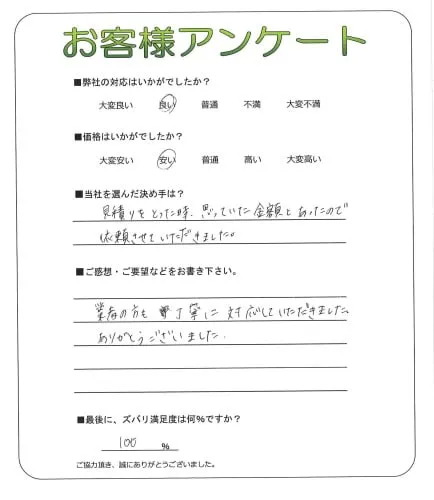 お客様アンケート
■弊社の対応はいかがでしたか？
大変良い 良い 普通 不満 大変不満
■価格はいかがでしたか？
大変安い 安い 普通 高い 大変高い
■当社を選んだ決め手は？
見積りをとった時、思っていた金額とあったので
依頼させていただきました。
■ご感想・ご要望などをお書き下さい。
業者の方も 丁寧に 対応していただきました。
ありがとうございました.
■最後に、ズバリ満足度は何％ですか？
100 ％
ご協力頂き、誠にありがとうございました。